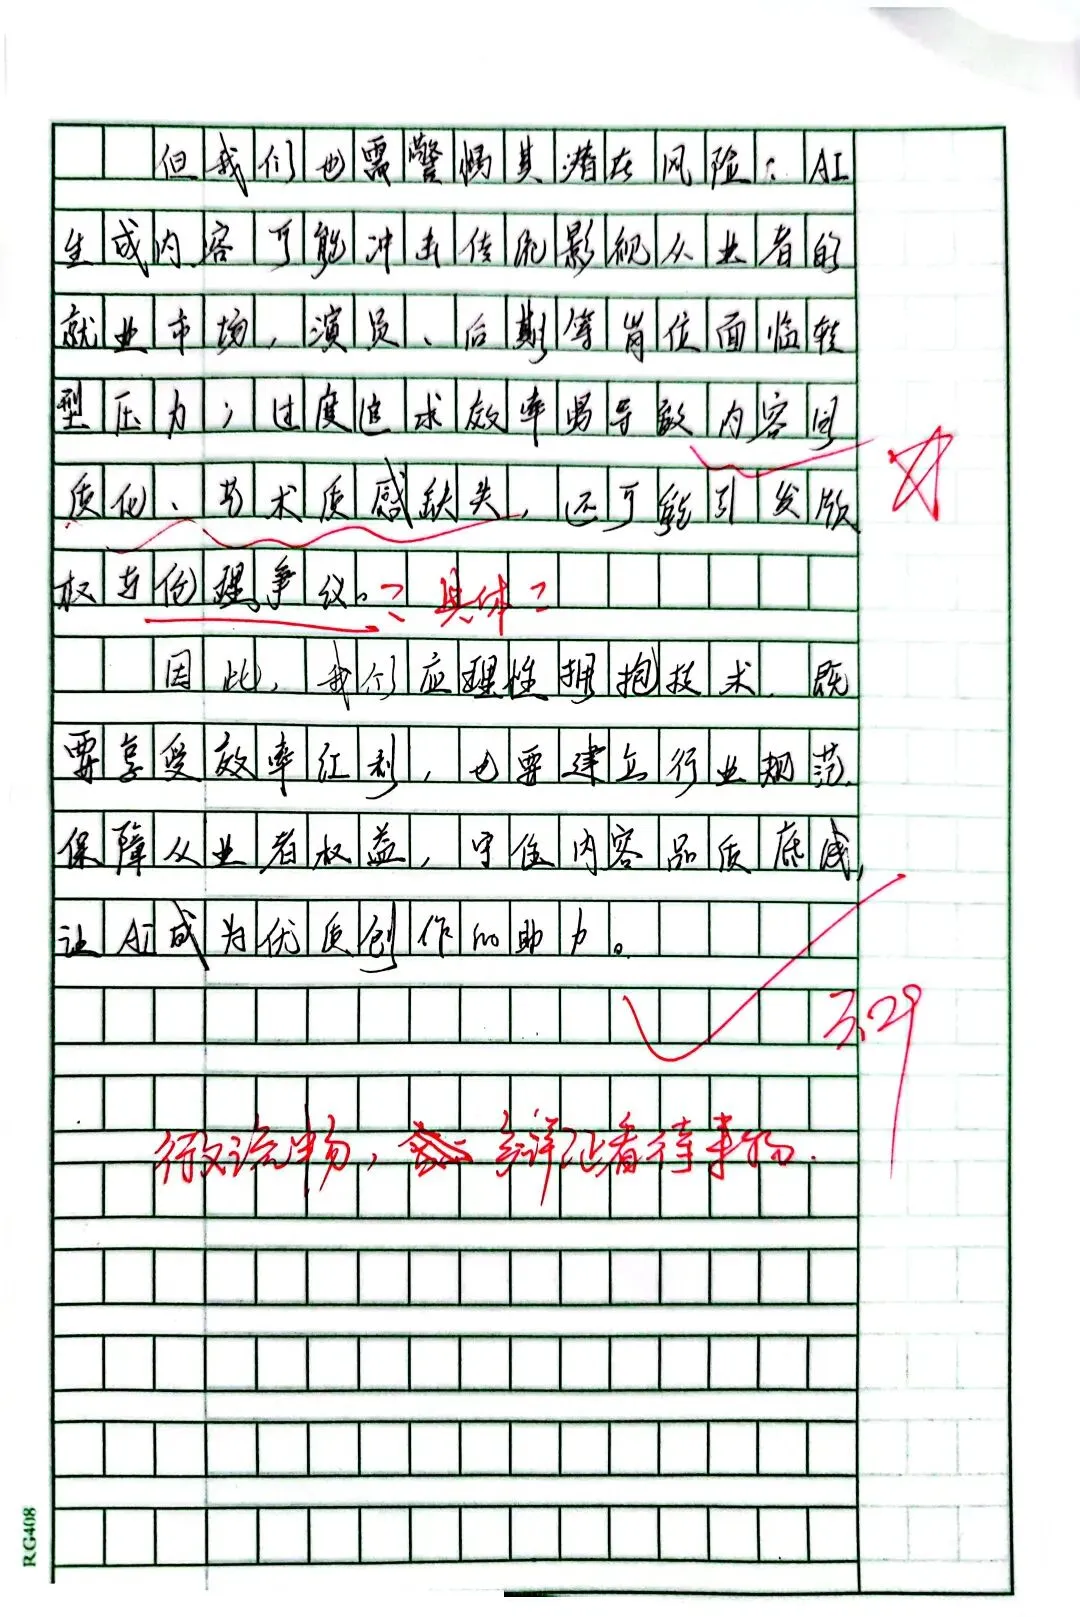 但我们也需警惕其潜在风险：AI
生成内容可能冲击传统影视从业者的
就业市场，演员、后期等岗位面临转
型压力；过度追求效率易导致内容同
质化、艺术质感缺失，还可能引发版
权与伦理争议。 具体
因此，我们应理性拥抱技术，既
要享受效率红利，也要建立行业规范，
保障从业者权益，守住内容品质底线，
让AI成为优质创作的助力。
3.29
行文流畅， 辩证看待事物.
RG408